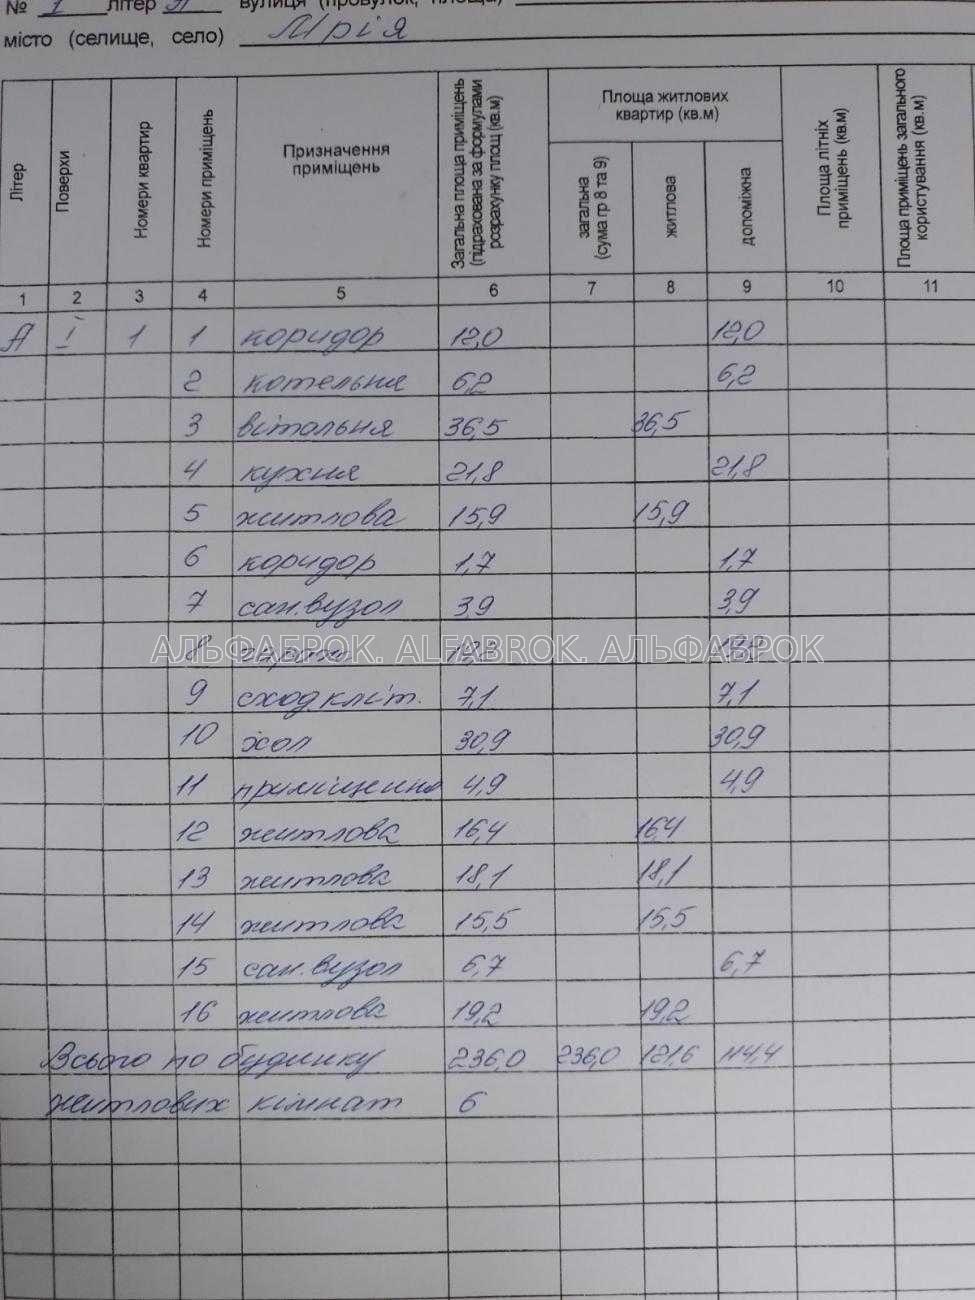 № 1 літер А вулиця (провулок, площа)
місто (селище, село) Мрія
Літер
Поверхи
Номери квартир
Номери приміщень
Призначення
приміщень
Загальна площа приміщень
(підрахована за формулами
розрахунку площ (кв.м)
Площа житлових
квартир (кв.м)
загальна
(сума гр 8 та 9)
житлова
допоміжна
Площа літніх
приміщень (кв.м)
Площа приміщень загального
користування (кв.м)
1 2 3 4 5 6 7 8 9 10 11
А I 1 1 коридор 12,0 12,0
2 котельня 6,2 6,2
3 вітальня 36,5 36,5
4 кухня 21,8 21,8
5 житлова 15,9 15,9
6 коридор 1,7 1,7
7 сан.вузол 3,9 3,9
АЛЬФАБРОК. ALFABROK. АЛЬФАБРОК
8 гараж
9 сход.кліт. 7,1 7,1
10 хол 30,9 30,9
11 приміщення 4,9 4,9
12 житлова 16,4 16,4
13 житлова 18,1 18,1
14 житлова 15,5 15,5
15 сан.вузол 6,7 6,7
16 житлова 19,2 19,2
Всього по будинку 236,0 236,0 121,6 114,4
житлових кімнат 6